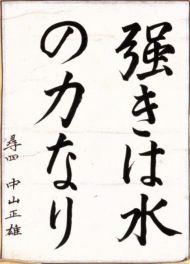 強きは水
の力なり
尋四 中山正雄